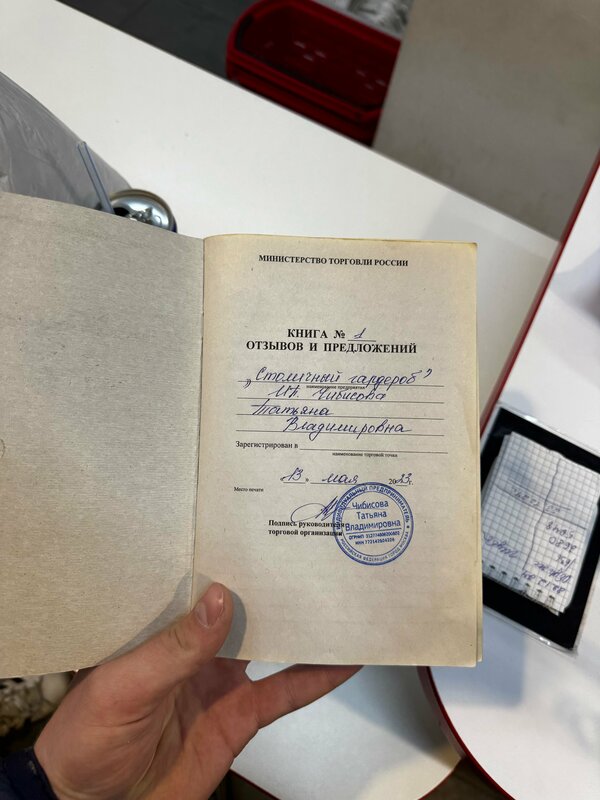 МИНИСТЕРСТВО ТОРГОВЛИ РОССИИ
КНИГА № 1
ОТЗЫВОВ И ПРЕДЛОЖЕНИЙ
„Столичный гардероб”
наименование предприятия
ИП. Чибисова
Татьяна
Владимировна
Зарегистрирован в
наименование торговой точки
13 . мая 2023 г.
Место печати
Подпись руководителя
торговой организации
ИНДИВИДУАЛЬНЫЙ ПРЕДПРИНИМАТЕЛЬ
Чибисова
Татьяна
Владимировна
РОССИЙСКАЯ ФЕДЕРАЦИЯ ГОРОД МОСКВА